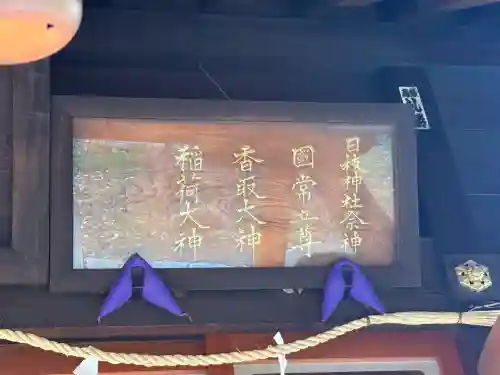 日枝神社祭神
國常立尊
香取大神
稲荷大神